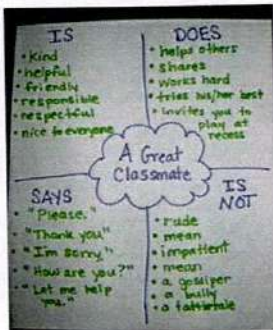 IS
• kind
• helpful
• friendly
• responsible
• respectful
• nice to everyone
DOES
• helps others
• shares
• works hard
• tries his/her best
• invites you to
play at
recess
A Great
Classmate
SAYS
• "Please."
• "Thank you"
• "I'm sorry."
• "How are you?"
• "Let me help
you."
IS
NOT
• rude
• mean
• impatient
• mean
• a gossiper
• a bully
• a tattletale